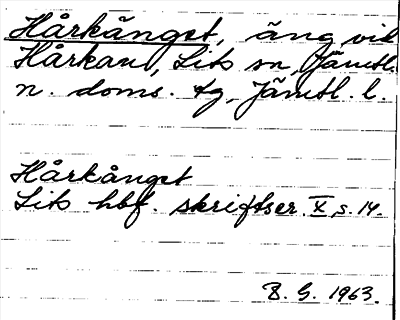 Hårkånget, äng vid
Hårkan, Lits sn, Jämtl.
n. doms. tg, Jämtl. l.
Hårkånget
Lits hbf. skriftser. X, s. 14.
B. G. 1963.